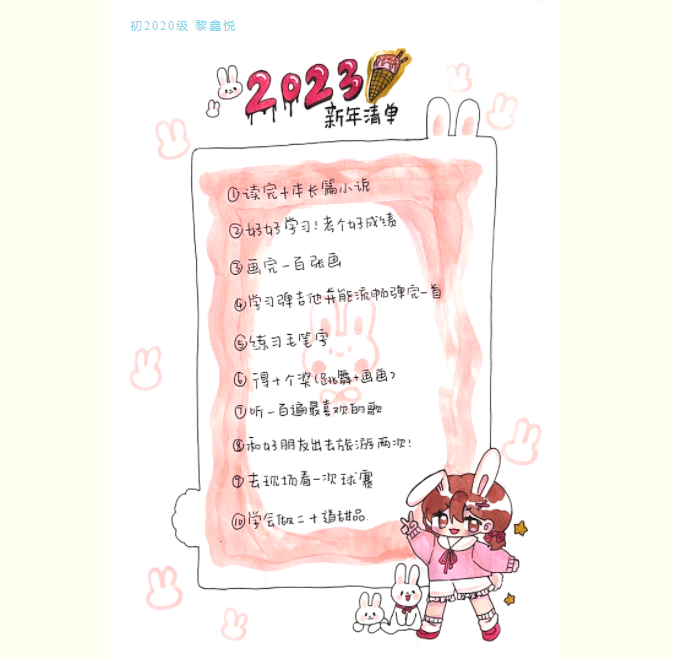 初2020级 黎鑫悦
2023
新年清单
①读完十本长篇小说
②好好学习!考个好成绩
③画完一百张画
④学习弹吉他并能流畅弹完一首
⑤练习毛笔字
⑥得十个奖(跳舞+画画)
⑦听一百遍最喜欢的歌
⑧和好朋友出去旅游两次!
⑨去现场看一次球赛
⑩学会做二十道甜品.